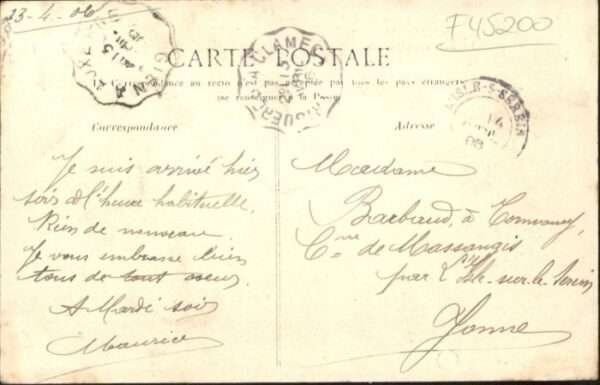 23-4-06
F45200
CARTE POSTALE
La Correspondance au recto n'est pas acceptée par tous les pays étrangers
(se renseigner à la Poste)
Correspondance
Adresse
CLAMECY
ISLE-S-SEREIN
14
Je suis arrivé hier
soir à l'heure habituelle.
Rien de nouveau
Je vous embrasse bien
tous de tout coeur
A Mardi soir
Maurice
Madame
Barbaud, à
Cne de Massangis
par l'Isle-sur-le Serein
Yonne